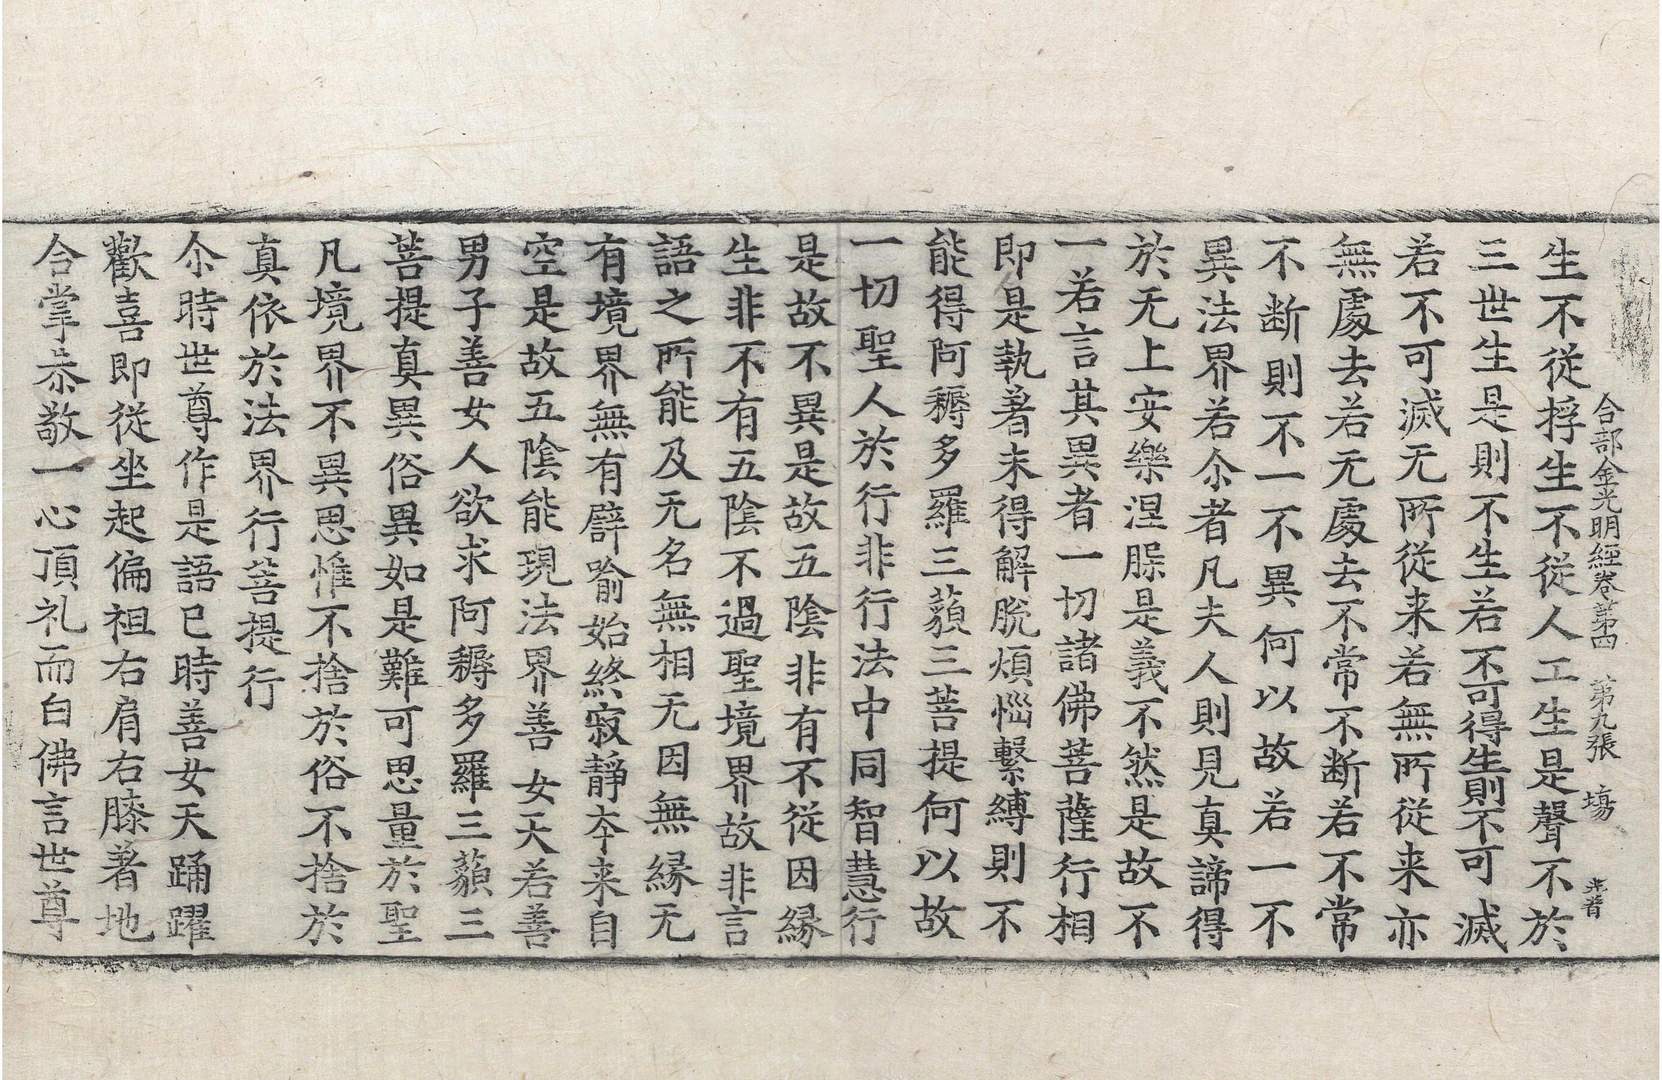 合部金光明經卷第四　第九張　塲
生不從捊生不從人工生是聲不於
三世生是則不生若不可得生則不可滅
若不可滅无所從来若無所從来亦
無處去若无處去不常不断若不常
不断則不一不異何以故若一不
異法界若尒者凡夫人則見真諦得
於无上安樂涅𦙁是義不然是故不
一若言其異者一切諸佛菩薩行相
即是執著未得解脫煩惱繫縛則不
能得阿耨多羅三藐三菩提何以故
一切聖人於行非行法中同智慧行
是故不異是故五陰非有不從因縁
生非不有五陰不過聖境界故非言
語之所能及无名無相无因無縁无
有境界無有譬喻始終寂靜夲来自
空是故五陰能現法界善女天若善
男子善女人欲求阿耨多羅三藐三
菩提真異俗異如是難可思量於聖
凡境界不異思惟不捨於俗不捨於
真依於法界行菩提行
尒時世尊作是語已時善女天踊躍
歡喜即從坐起偏袒右肩右膝著地
合掌恭敬一心頂礼而白佛言世尊